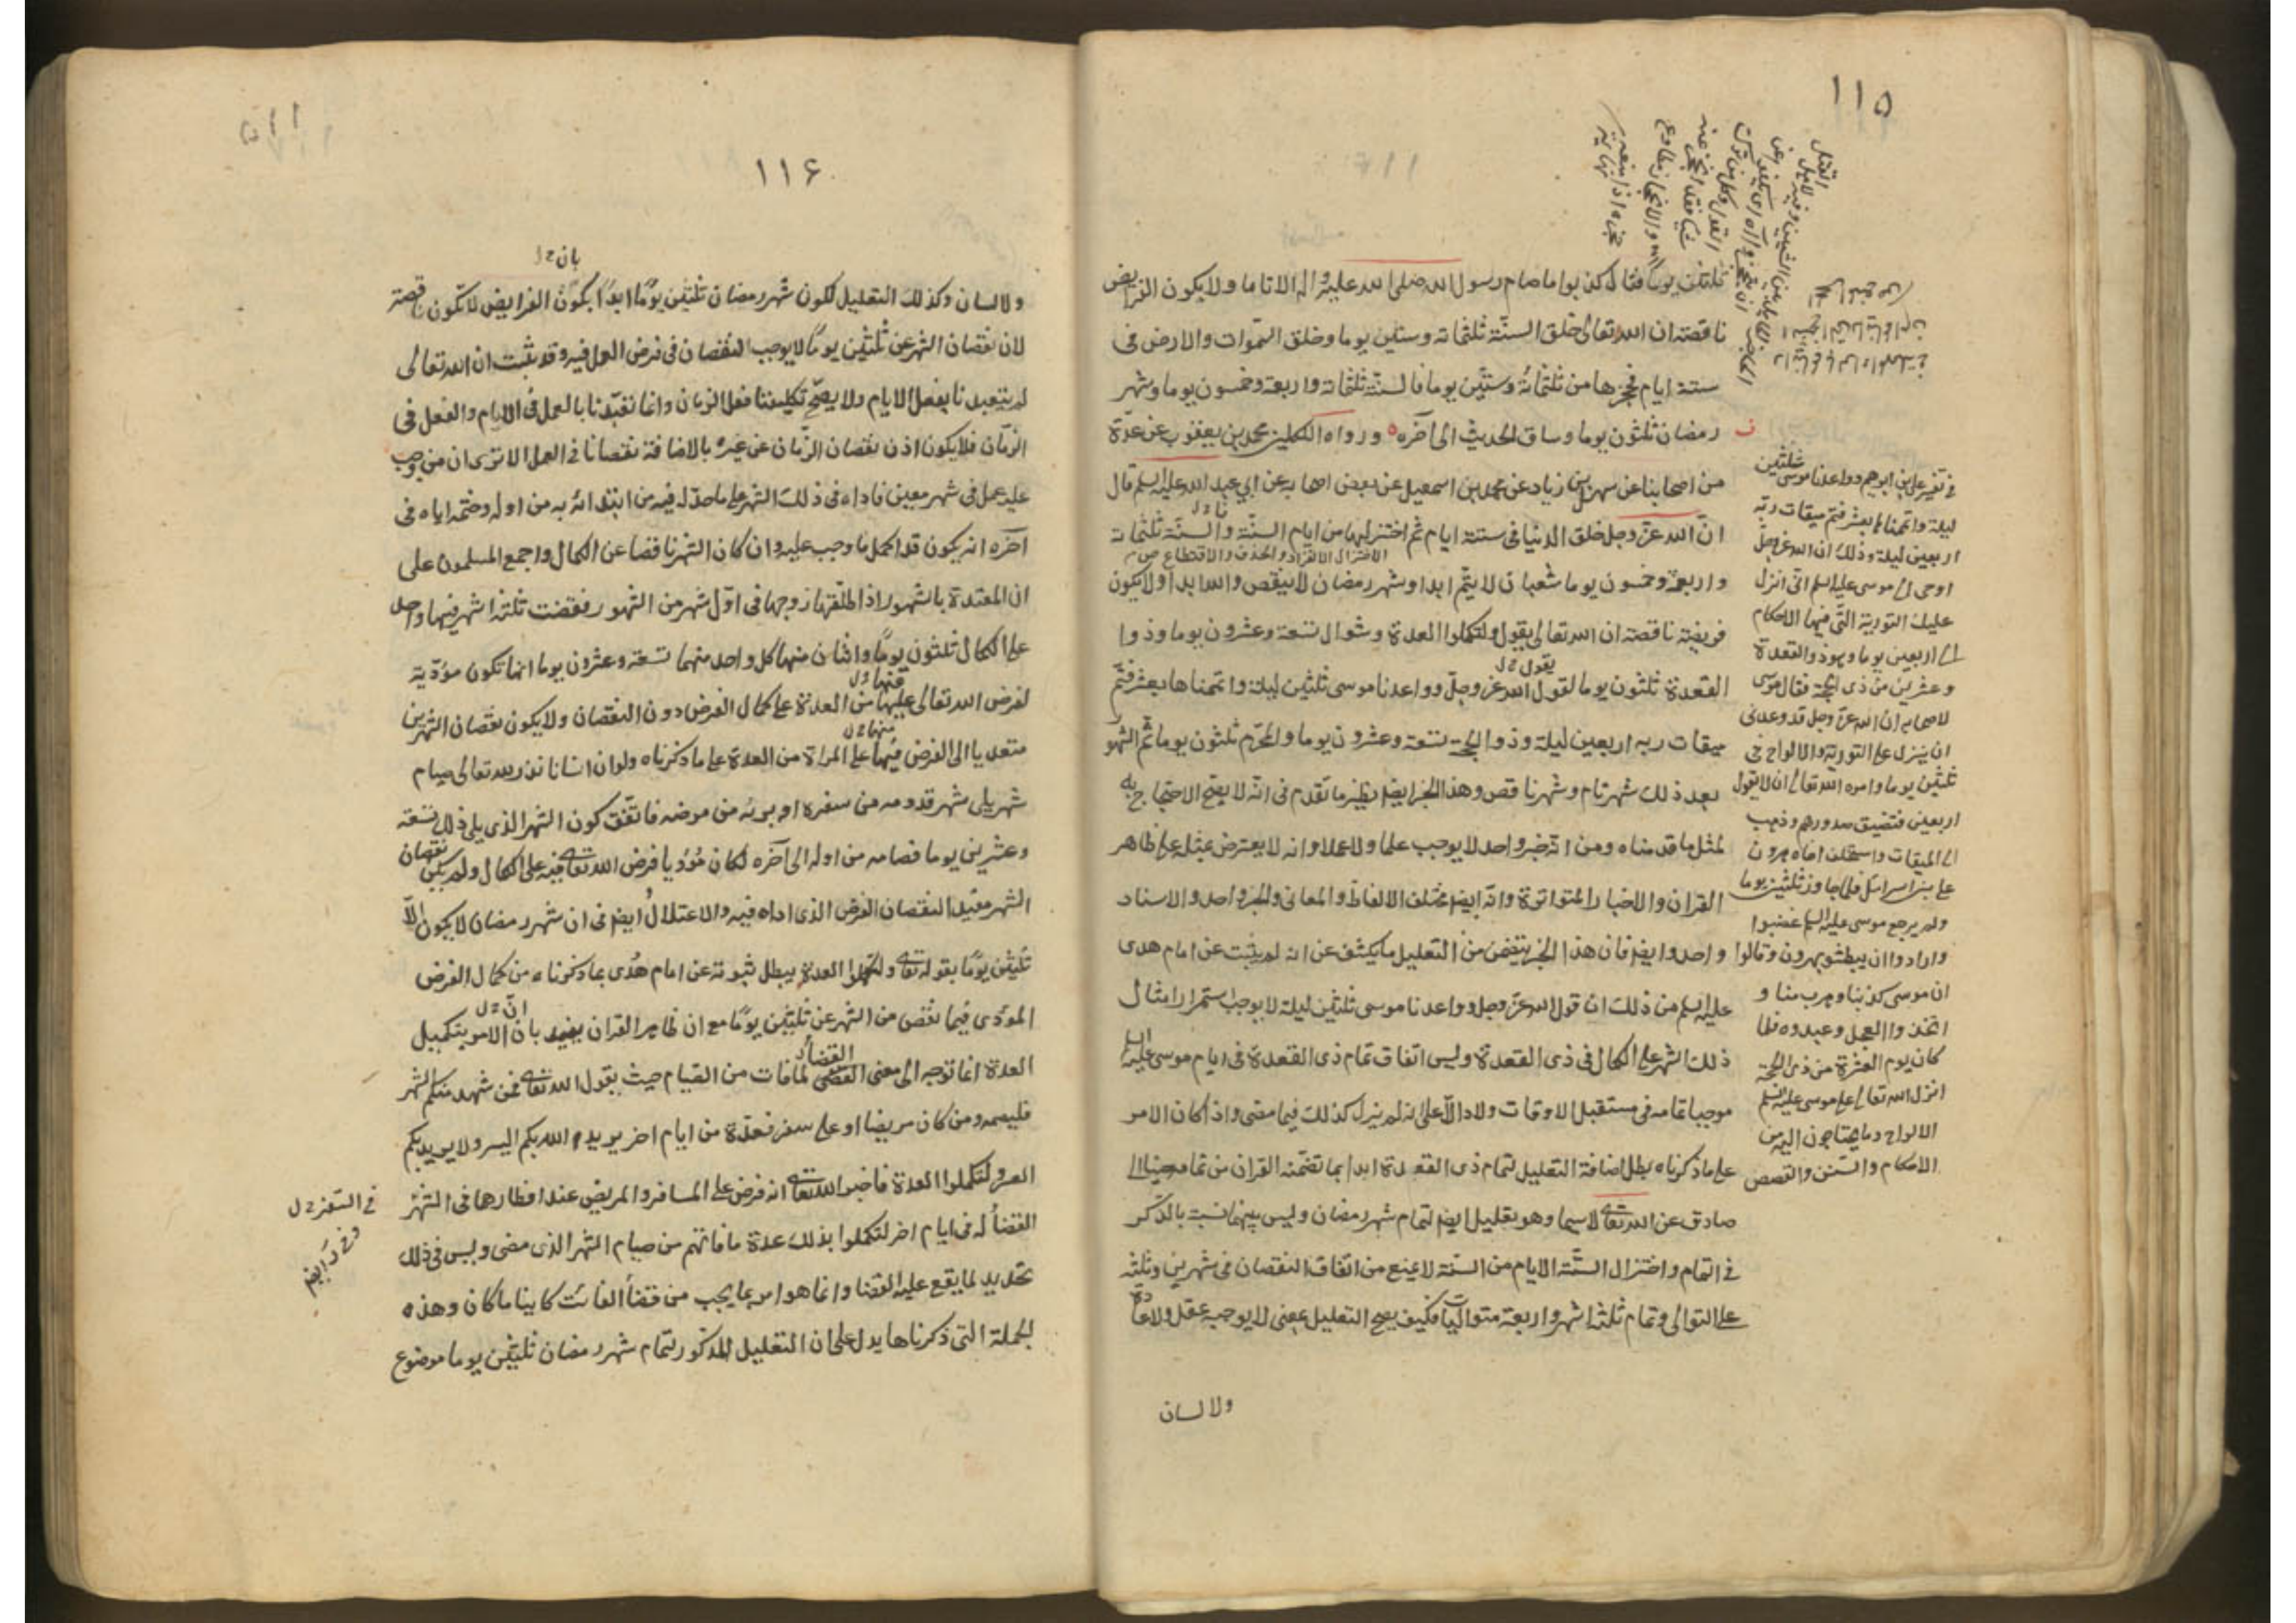 ١١٥
ثلثين يوما فقال كذبوا ما صام رسول الله صلى الله عليه واله الا تاما ولا يكون الفرايض
ناقصة ان الله تعالى خلق السنة ثلثمائة وستين يوما وخلق السموات والارض فى
ستة ايام فحجزها من ثلثمائة وستين يوما فالسنة ثلثمائة واربعة وخمسون يوما وشهر
رمضان ثلثون يوما وساق الحديث الى آخره ورواه الكلينى محمد بن يعقوب عن عدة
من اصحابنا عن سهل بن زياد عن محمد بن اسمعيل عن بعض اصحابه عن ابي عبد الله عليه السلم قال
ان الله عز وجل خلق الدنيا فى ستة ايام ثم اختزلها من ايام السنة والسنة ثلثمائة
الاختزال الانفراد والحذف والاقتطاع ص
واربعة وخمسون يوما شعبان لا يتم ابدا وشهر رمضان لا ينقص والله ابدا ولا يكون
فريضة ناقصة ان الله تعالى يقول ولتكملوا العدة وشوال تسعة وعشرون يوما وذوا
يقول
القعدة ثلثون يوما لقول الله عز وجل وواعدنا موسى ثلثين ليلة واتممناها بعشر فتم
ميقات ربه اربعين ليلة وذو الحجة تسعة وعشرون يوما والمحرم ثلثون يوما ثم الشهور
بعد ذلك شهر تام وشهر ناقص وهذا الخبر ايضا نظير ما تقدم فى انه لا يصح الاحتجاج به
لمثل ما قدمناه ومن انه خبر واحد لا يوجب علما ولا عملا وانه لا يعترض بمثله على ظاهر
القران والاخبار المتواترة وانه ايضا مختلف الالفاظ والمعانى والخبر واحد والاسناد
واحد وايضا فان هذا الخبر يتضمن من التعليل ما يكشف عن انه لم يثبت عن امام هدى
عليه السلم من ذلك ان قول الله عز وجل وواعدنا موسى ثلثين ليلة لا يوجب استمرار امثال
ذلك الشهر على الكمال فى ذى القعدة وليس اتفاق تمام ذى القعدة فى ايام موسى عليه السلم
موجبا تمامه فى مستقبل الاوقات ولا دالا على انه لم يزل كذلك فيما مضى واذا كان الامر
على ما ذكرناه بطل اضافة التعليل لتمام ذى القعدة ابدا بما تضمنه القران من تمامه حينا الى
صادق عن الله تعالى لا سيما وهو تعليل ايضا لتمام شهر رمضان وليس بينهما نسبة بالذكر
فى التمام واختزال الستة الايام من السنة لا يمنع من اتفاق النقصان فى شهرين وثلثة
على التوالى وتمام ثلثة اشهر واربعة متواليات فكيف يصح التعليل بمعنى لا يوجبه عقل ولا عادة
ولا لسان
فى تفسير على بن ابرهيم وواعدنا موسى ثلثين
ليلة واتممناها بعشر فتم ميقات ربه
اربعين ليلة وذلك ان الله عز وجل
اوحى الى موسى عليه السلم انى انزل
عليك التورية التى فيها الاحكام
الى اربعين يوما وهو ذو القعدة
وعشرين من ذى الحجة فقال موسى
لاصحابه ان الله عز وجل قد وعدنى
ان ينزل على التورية والالواح فى
ثلثين يوما وامره الله تعالى ان لا يقول
اربعين فتضيق صدورهم وذهب
الى الميقات واستخلف اخاه هرون
على بنى اسرائيل فلما جاوز ثلثين يوما
ولم يرجع موسى عليه السلم غضبوا
وارادوا ان يبطشوا بهرون وقالوا
ان موسى كذبنا وهرب منا و
اتخذوا العجل وعبدوه فلما
كان يوم العشرة من ذى الحجة
انزل الله تعالى على موسى عليه السلم
الالواح وما يحتاجون اليه من
الاحكام والسنن والقصص
١١٦
بان
ولا لسان وكذلك التعليل لكون شهر رمضان ثلثين يوما ابدا بكون الفرايض لا تكون ناقصة
لان نقصان الشهر عن ثلثين يوما لا يوجب النقصان فى فرض العمل فيه وقد ثبت ان الله تعالى
لم يتعبدنا بفعل الايام ولا يصح تكليفنا فعل الزمان وانما تعبدنا بالعمل فى الايام والفعل فى
الزمان فلا يكون اذن نقصان الزمان عن غيره بالاضافة نقصانا فى العمل الا ترى ان من وجب
عليه عمل فى شهر معين فاداه فى ذلك الشهر على ما حد له فيه من ابتدائه به من اوله وختمه اياه فى
آخره انه يكون قد اكمل ما وجب عليه وان كان الشهر ناقصا عن الكمال واجمع المسلمون على
ان المعتدة بالشهور اذا طلقها زوجها فى اول شهر من الشهور فقضت ثلثة اشهر فيها واحد
على الكمال ثلثون يوما واثنان منها كل واحد منهما تسعة وعشرون يوما انها تكون مؤدية
لفرض الله تعالى عليها من العدة على كمال الفرض دون النقصان ولا يكون نقصان الشهرين
متعديا الى الفرض فيها على المراة من العدة على ما ذكرناه ولو ان انسانا نذر لله تعالى صيام
شهر يلى شهر قدومه من سفره او برئه من مرضه فاتفق كون الشهر الذى يلى ذلك تسعة
وعشرين يوما فصامه من اوله الى آخره لكان مؤديا فرض الله تعالى فيه على الكمال ولم يكن نقصان
الشهر مفيد النقصان الفرض الذى اداه فيه والاعتلال ايضا فى ان شهر رمضان لا يكون الا
ثلثين يوما بقوله تعالى ولتكملوا العدة يبطل ثبوته عن امام هدى بما ذكرناه من كمال الفرض
المؤدى فيما نقص من الشهر عن ثلثين يوما مع ان ظاهر القران يفيد بان الامر بتكميل
القضاء
العدة انما توجه الى معنى القضى لما فات من القيام حيث يقول الله تعالى فمن شهد منكم الشهر
فليصمه ومن كان مريضا او على سفر فعدة من ايام اخر يريد الله بكم اليسر ولا يريد بكم
العسر ولتكملوا العدة فاخبر الله تعالى انه فرض على المسافر والمريض عند افطارهما فى الشهر
القضاء له فى ايام اخر لتكملوا بذلك عدة ما فاتهم من صيام الشهر الذى مضى وليس فى ذلك
تحديد لما يقع عليه القضا وانما هو امر بما يجب من قضاء الفائت كاينا ما كان وهذه
الجملة التى ذكرناها يدل على ان التعليل المذكور لتمام شهر رمضان ثلثين يوما موضوع